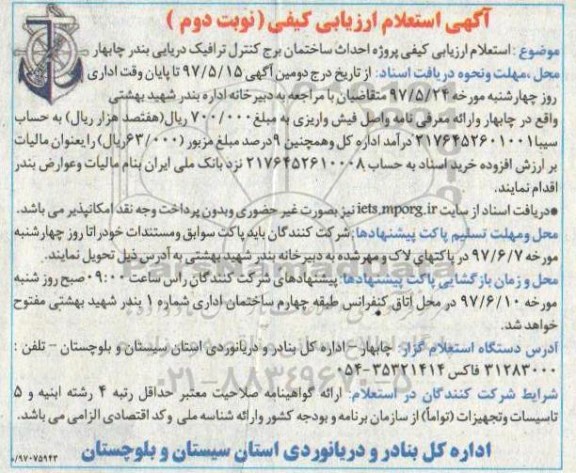 آگهی استعلام ارزیابی کیفی (نوبت دوم)
موضوع: استعلام ارزیابی کیفی پروژه احداث ساختمان برج کنترل ترافیک دریایی بندر چابهار
محل، مهلت ونحوه دریافت اسناد: از تاریخ درج دومین آگهی ۹۷/۵/۱۵ تا پایان وقت اداری
روز چهارشنبه مورخه ۹۷/۵/۲۴ متقاضیان با مراجعه به دبیرخانه اداره بندر شهید بهشتی
واقع در چابهار وارائه معرفی نامه واصل فیش واریزی به مبلغ ۷۰۰/۰۰۰ ریال(هفتصد هزار ریال) به حساب
سیبا ۲۱۷۶۴۵۲۶۰۱۰۰۱ درآمد اداره کل وهمچنین ۹درصد مبلغ مزبور (۶۳/۰۰۰ریال) رابعنوان مالیات
بر ارزش افزوده خرید اسناد به حساب ۲۱۷۶۴۵۲۶۱۰۰۰۸ نزد بانک ملی ایران بنام مالیات وعوارض بندر
اقدام نمایند.
●دریافت اسناد از سایت iets.mporg.ir نیز بصورت غیر حضوری وبدون پرداخت وجه نقد امکانپذیر می باشد.
محل ومهلت تسلیم پاکت پیشنهادها: شرکت کنندگان باید پاکت سوابق ومستندات خودرا تا روز چهارشنبه
مورخه ۹۷/۶/۷ در پاکتهای لاک و مهرشده به دبیرخانه بندر شهید بهشتی به آدرس ذیل تحویل نمایند.
محل و زمان بازگشایی پاکت پیشنهادها: پیشنهادهای شرکت کنندگان راس ساعت ۰۹:۰۰ صبح روز شنبه
مورخه ۹۷/۶/۱۰ در محل اتاق کنفرانس طبقه چهارم ساختمان اداری شماره ۱ بندر شهید بهشتی مفتوح
خواهد شد.
آدرس دستگاه استعلام گزار: چابهار – اداره کل بنادر و دریانوردی استان سیستان و بلوچستان – تلفن :
۳۱۲۸۳۰۰۰ فاکس ۳۵۳۲۱۴۱۴-۰۵۴
شرایط شرکت کنندگان در استعلام: ارائه گواهینامه صلاحیت معتبر حداقل رتبه ۴ رشته ابنیه و ۵
تاسیسات وتجهیزات (تواماً) از سازمان برنامه و بودجه کشور وارائه شناسه ملی وکد اقتصادی الزامی می باشد.
اداره کل بنادر و دریانوردی استان سیستان و بلوچستان
۰/۹۷۰۷۵۹۴۳
ParsNamadData
۰۲۱-۸۸۳۴۹۶۷۰-۵